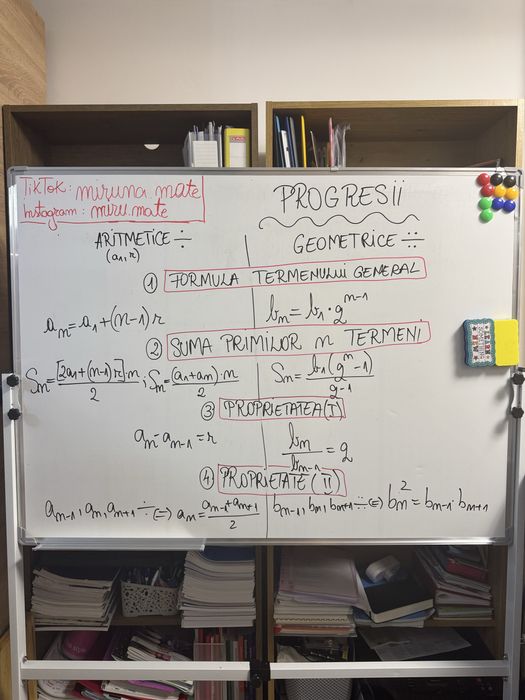 TikTok: miruna.mate
Instagram: miru.mate
PROGRESII
ARITMETICE ÷
(a₁, r)
GEOMETRICE ∺
① FORMULA TERMENULUI GENERAL
aₙ = a₁ + (n-1) r
bₙ = b₁ · qⁿ⁻¹
② SUMA PRIMILOR n TERMENI
Sₙ = [2a₁ + (n-1) r] · n / 2 ; Sₙ = (a₁ + aₙ) · n / 2
Sₙ = b₁ (qⁿ - 1) / q - 1
③ PROPRIETATEA (I)
aₙ - aₙ₋₁ = r
bₙ / bₙ₋₁ = q
④ PROPRIETATE (II)
aₙ₋₁, aₙ, aₙ₊₁ ÷ (=) aₙ = aₙ₋₁ + aₙ₊₁ / 2
bₙ₋₁, bₙ, bₙ₊₁ ∺ (=) bₙ² = bₙ₋₁ · bₙ₊₁